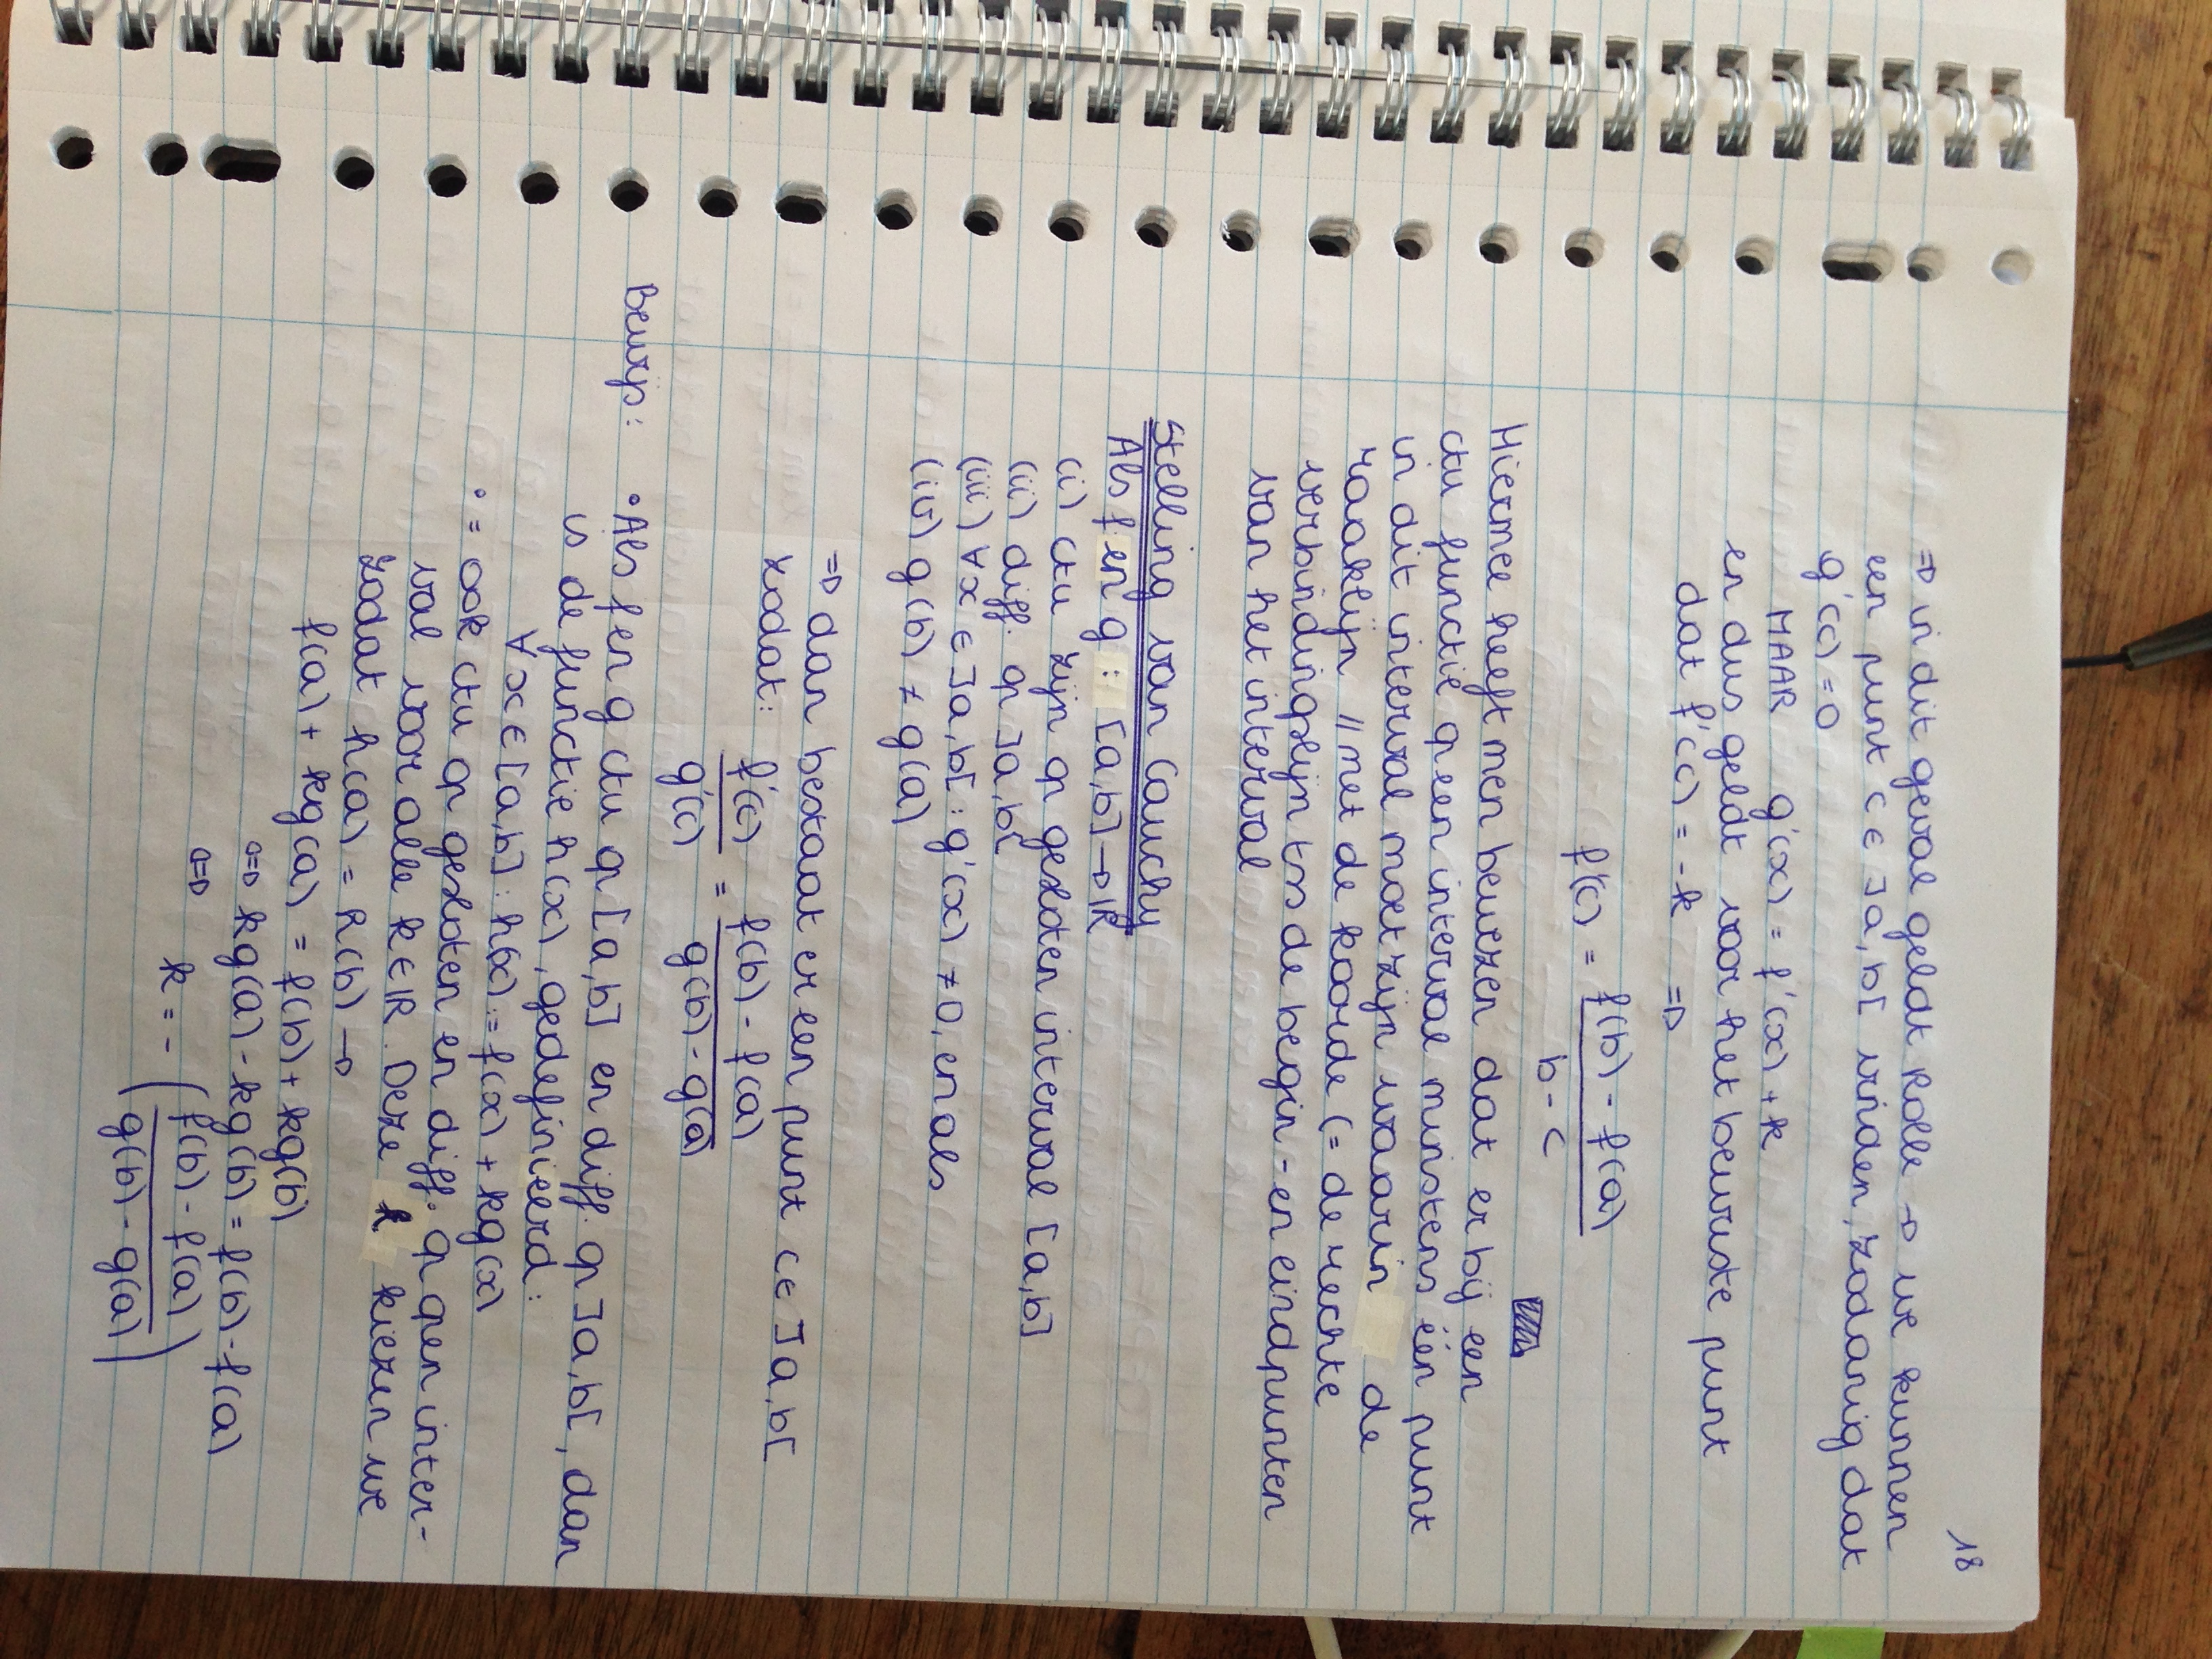 18
⇒ in dit geval geldt Rolle → we kunnen
een punt c ∈ ]a,b[ vinden, zodanig dat
g'(c) = 0
MAAR g'(x) = f'(x) + k
en dus geldt voor het bewuste punt
dat f'(c) = -k ⇒
f'(c) = (f(b) - f(a)) / (b - c)
Hiermee heeft men bewezen dat er bij een
ctu functie op een interval minstens één punt
in dit interval moet zijn waarin de
raaklijn // met de koorde (= de rechte
verbindingslijn tss de begin- en eindpunten
van het interval
Stelling van Cauchy
Als f en g : [a,b] → ℝ
(i) ctu zijn op gesloten interval [a,b]
(ii) diff. op ]a,b[
(iii) ∀x ∈ ]a,b[ : g'(x) ≠ 0, en als
(iv) g(b) ≠ g(a)
⇒ dan bestaat er een punt c ∈ ]a,b[
zodat: f'(c) / g'(c) = (f(b) - f(a)) / (g(b) - g(a))
Bewijs: • Als f en g ctu op [a,b] en diff. op ]a,b[, dan
is de functie h(x), gedefinieerd:
∀x ∈ [a,b] : h(x) := f(x) + kg(x)
• = ook ctu op gesloten en diff. op open inter-
val voor alle k ∈ ℝ. Deze k kiezen we
zodat h(a) = h(b) →
f(a) + kg(a) = f(b) + kg(b)
⇔ kg(a) - kg(b) = f(b) - f(a)
⇔ k = - ( (f(b) - f(a)) / (g(b) - g(a)) )